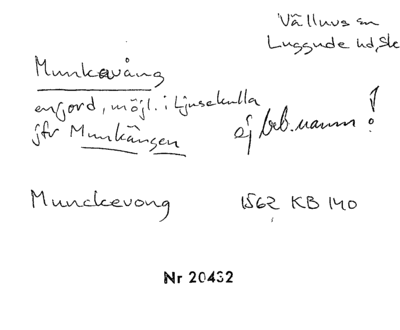 Välluvs sn
Luggude hd, Sk
Munkavång
enjord, möjl. i Ljusekulla
jfr Munkängen
ej beb.namn!
Munckevong 1562 KB 140
Nr 20432